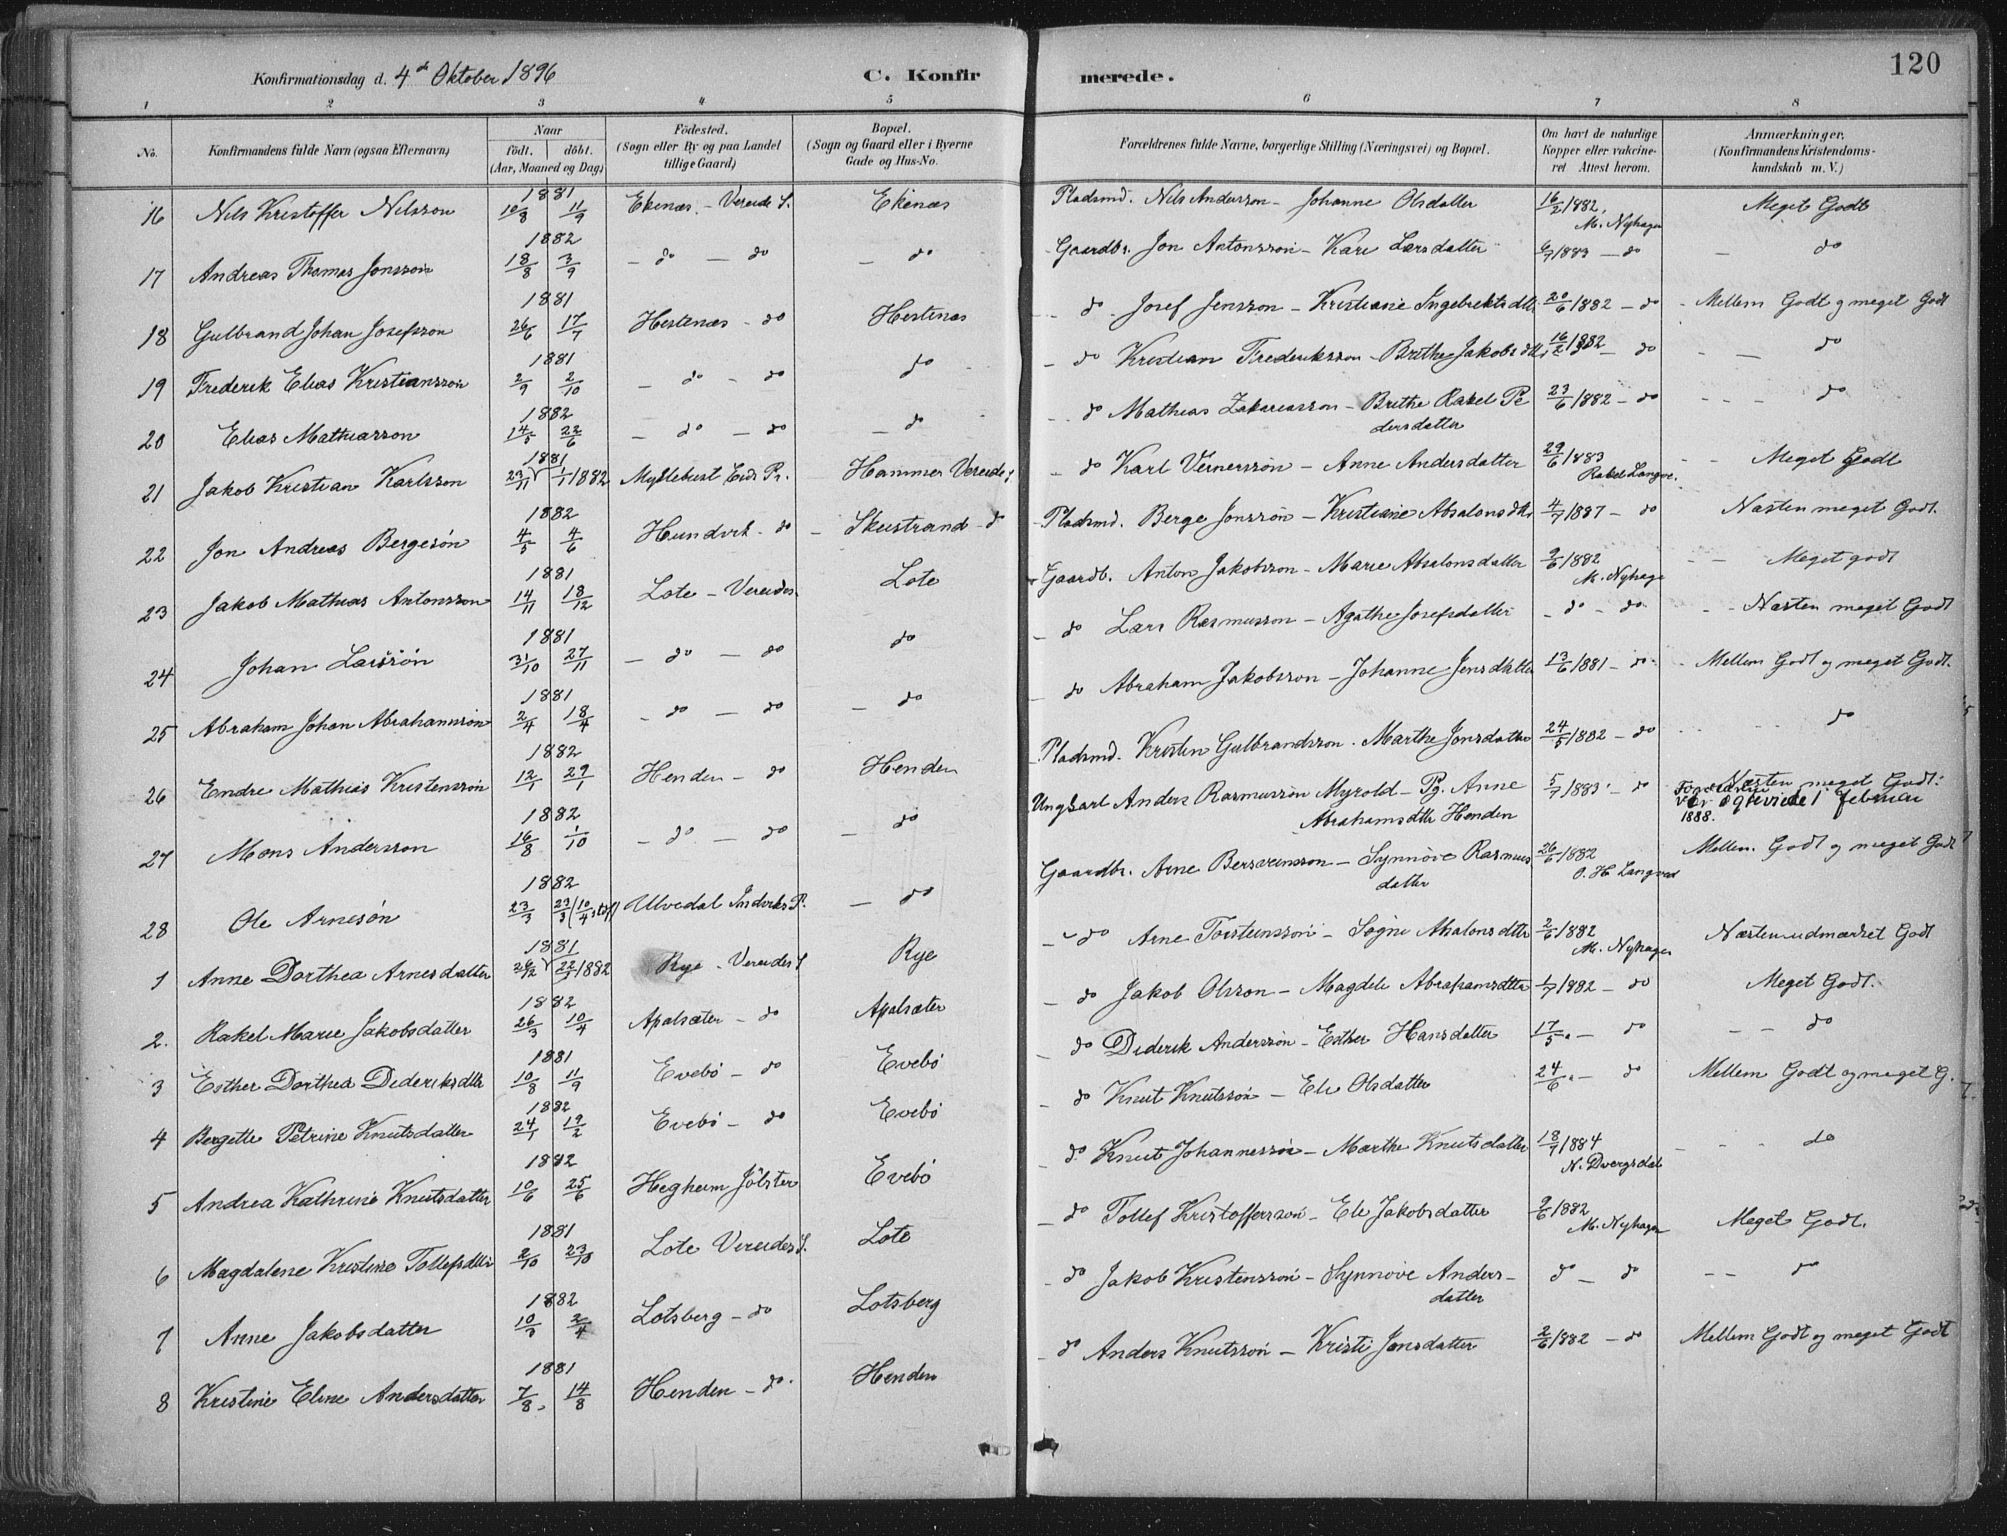 Konfirmationsdag d. 4de Oktober 1896 C. Konfirmerede. 120
1 2 3 4 5 6 7 8
No. Konfirmandens fulde Navn (ogsaa Efternavn) Naar Födt. döbt. (Aar, Maaned og Dag) Födested. (Sogn eller By og paa Landet tillige Gaard) Bopæl. (Sogn og Gaard eller i Byerne Gade og Hus-No. Forældrenes fulde Navne, borgerlige Stilling (Næringsvei) og Bopæl. Om havt de naturlige Kopper eller vakcineret Attest herom. Anmærkninger, (Konfirmandens Kristendomskundskab m. V.)
16 Nils Kristoffer Nilsson 1881 10/8 11/9 Ekenæs - Vereide S. Ekenæs Pladsmd. Nils Anderson - Johanne Olsdatter 16/2 1882, M. Nyhagen Meget Godt
17 Andreas Thomas Jonsson 1882 18/8 3/9 - do - do - do Gaardbr. Jon Antonsson - Kari Larsdatter 6/7 1883 - do - do
18 Gulbrand Johan Josefsson 1881 26/6 17/7 Hestenæs - do Hestenæs - do Josef Jensson - Kristiane Ingebrektsdtr 20/6 1882 - do - Mellem Godt og meget Godt
19 Frederik Elias Kristiansson 1881 2/9 2/10 - do - do do - do Kristian Frederiksson - Brithe Jakobsdtr 16/2 1882 - do - do
20 Elias Mathiasson 1882 14/5 22/6 - do - do - do - do Mathias Zakariasson - Brithe Rakel Pedersdatter 23/6 1882 - do - do
21 Jakob Kristian Karlsson 1881 23/11 1/1 1882 Myklebust Eids Pr. Hammer Vereide S. - do Karl Vernersson - Anne Andersdatter 29/6 1883 Rakel Langve. - Meget Godt
22 Jon Andreas Bergesøn 1882 4/5 4/6 Hundvik - do - Skeistrand - d - Pladsmd. Berge Jonssøn - Kristiane Absalonsdtr 4/7 1887 - do - Næsten meget Godt.
23 Jakob Mathias Antonsson 1881 14/11 18/12 Lote - Vereides. Lote Gaardb. Anton Jakobsson - Marie Absalonsdatter 2/6 1882 M. Nyhage - Meget godt
24 Johan Larssøn 1881 31/10 27/11 - do - do do - do Lars Rasmusson - Agathe Josefsdatter - do - do - Næsten meget Godt
25 Abraham Johan Abrahamssøn 1881 2/4 18/4 - do - do - do - do Abraham Jakobsson - Johanne Jensdatter 13/6 1881 - do - Mellem Godt og meget Godt.
26 Endre Mathias Kristenssøn 1882 12/1 29/1 Henden - do Henden Pladsmd. Kristen Gulbrandsson. Marthe Jonsdatter 24/5 1882 - do - do
27 Mons Andersson 1882 16/8 1/10 - do - do - do Ungkarl Anders Rasmussøn Myrold - Pg. Anne Abrahamsdtr Henden 5/7 1883 - do Næsten meget Godt. Forældrene blev egteviede 1 februar 1888.
28 Ole Arnesøn 1882 23/3 23/3 (10/4 stf) Ulvedal Indviks P. - do Gaardbr. Arne Bersvensson - Synnöve Rasmusdatter 26/6 1882 O. H. Langved Mellem Godt og meget Godt
1 Anne Dorthea Arnesdatter 1881 26/12 22/1 1882 Rye - Vereides S Rye - do Arne Torsteinssøn - Søgni Absalonsdtr 2/6 1882 M. Nyhagen Næsten udmærket Godt
2. Rakel Marie Jakobsdatter 1882 26/3 10/4 Apalsæter - do Apalsæter - do Jakob Olsson - Magdele Abrahamsdtr 1/7 1882 - do Meget Godt.
3 Esther Dorthea Dideriksdtr 1881 10/8 11/9 Evebö - do Evebö - do Diderik Anderssøn - Esther Hansdatter 17/5 " - do - - do
4 Bergette Petrine Knutsdatter 1882 24/1 19/2 Evebö - do Evebö - do Knut Knutssøn - Eli Olsdatter 24/6 " - do Mellem Godt og meget G.
5 Andrea Kathrine Knutsdatter 1882 10/6 25/6 Hegheim Jölster Evebö - do Knut Johannessøn - Marthe Knutsdatter 18/7 1884 N. Dvergsdal - do
6 Magdalene Kristine Tollefsdtr 1881 2/10 23/10 Lote Vereides S. Lote - do Tollef Kristofferssøn - Eli Jakobsdatter 2/6 1882 M. Nyhagen Meget Godt.
7 Anne Jakobsdatter 1882 10/3 2/4 Lotsberg - do Lotsberg - do Jakob Kristenssøn - Synnöve Andersdatter do - do - - do
8 Kristine Eline Andersdatter 1881 7/8 14/8 Henden - do Henden - do Anders Knutssøn - Kristi Jonsdatter 2/6 1882 - do Mellem Godt og meget Godt